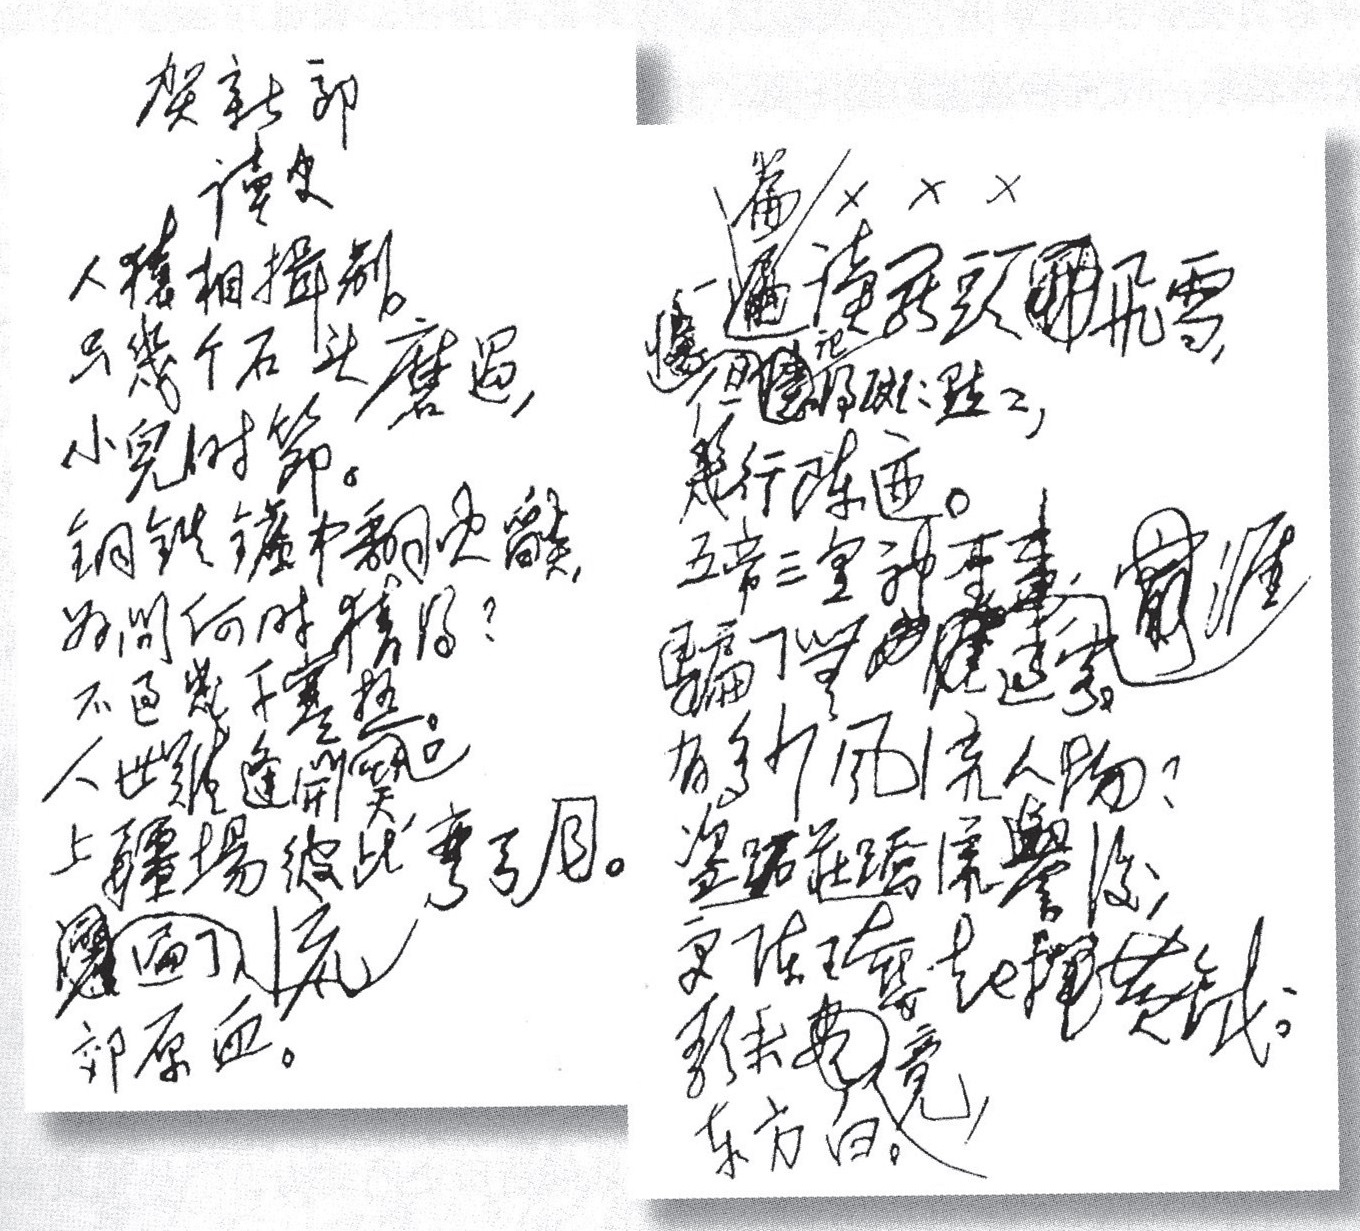 贺新郎
读史
人猿相揖别。
只幾个石头磨过,
小兒时節。
铜铁鑪中翻火焰,
为问何时猜得?
不过幾千寒热。
人世难逢開口笑,
上疆場彼此彎弓月。
流遍了,
郊原血。
× × ×
一篇读罢頭飛雪,
但记得斑斑點點,
幾行陈迹。
五帝三皇神聖事,
騙了無涯过客。
有多少风流人物?
盗跖莊蹻流譽後,
更陈王奋起揮黄钺。
歌未竟,
东方白。